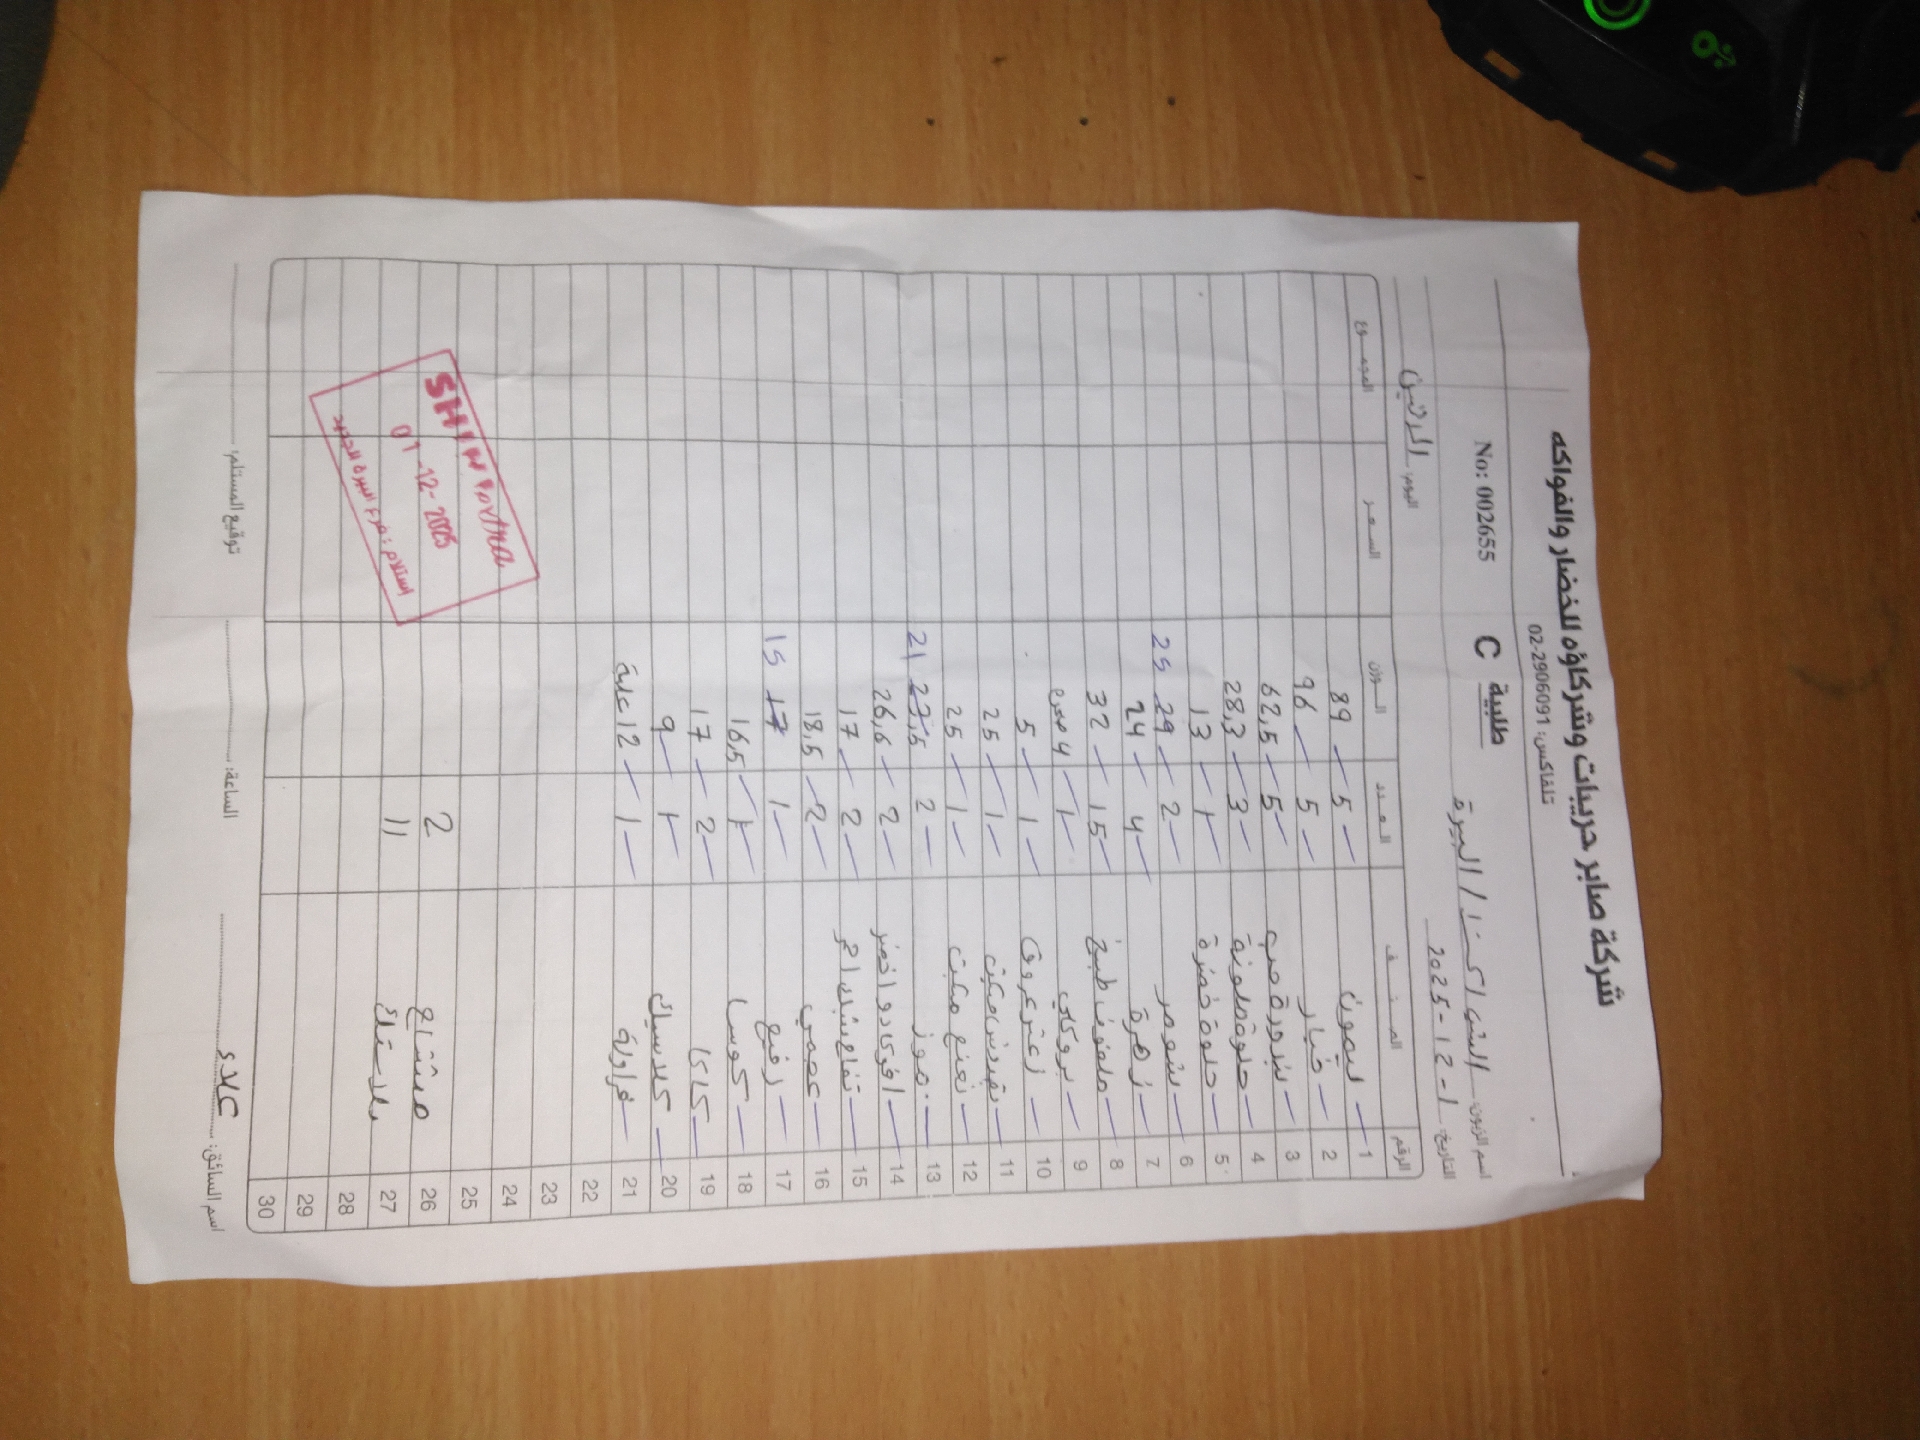 شركة صابر حريبات وشركاؤه للخضار والفواكه
تلفاكس: 02-2906091
No: 002655 طلبية C
اسم الزبون: الشمراكس ١ / البيرة
التاريخ: 1-12-2025 اليوم: الاثنين
الرقم الصنف العدد الوزن السعر المجموع
1 ليمون 5 89
2 خيار 5 96
3 بندورة حب 5 62,5
4 حلوة ملونة 3 28,3
5 حلوة خضرة 1 13
6 شومر 2 29 25
7 زهرة 4 24
8 ملفوف طبيخ 15 32
9 بروكلي 1 4
10 زعتر عروق 1 5
11 بقدونس مكبت 1 25
12 نعنع مكبت 1 25
13 موز 2 23,5 21
14 افوكادو اخضر 2 26,6
15 تفاح 2 17
16 عجمي 2 18,5
17 رفيع 1 17 15
18 كوسا 1 16,5
19 كاكا 2 17
20 كلاسيك 1 9
21 فراولة 1 12 علبة
22
23
24
25
26 مشتاح 2
27 بلاستيك 11
28
29
30
SHINI
01-12-2025
استلام: فرع البيرة الجديد
اسم السائق: علاء الساعة: توقيع المستلم: